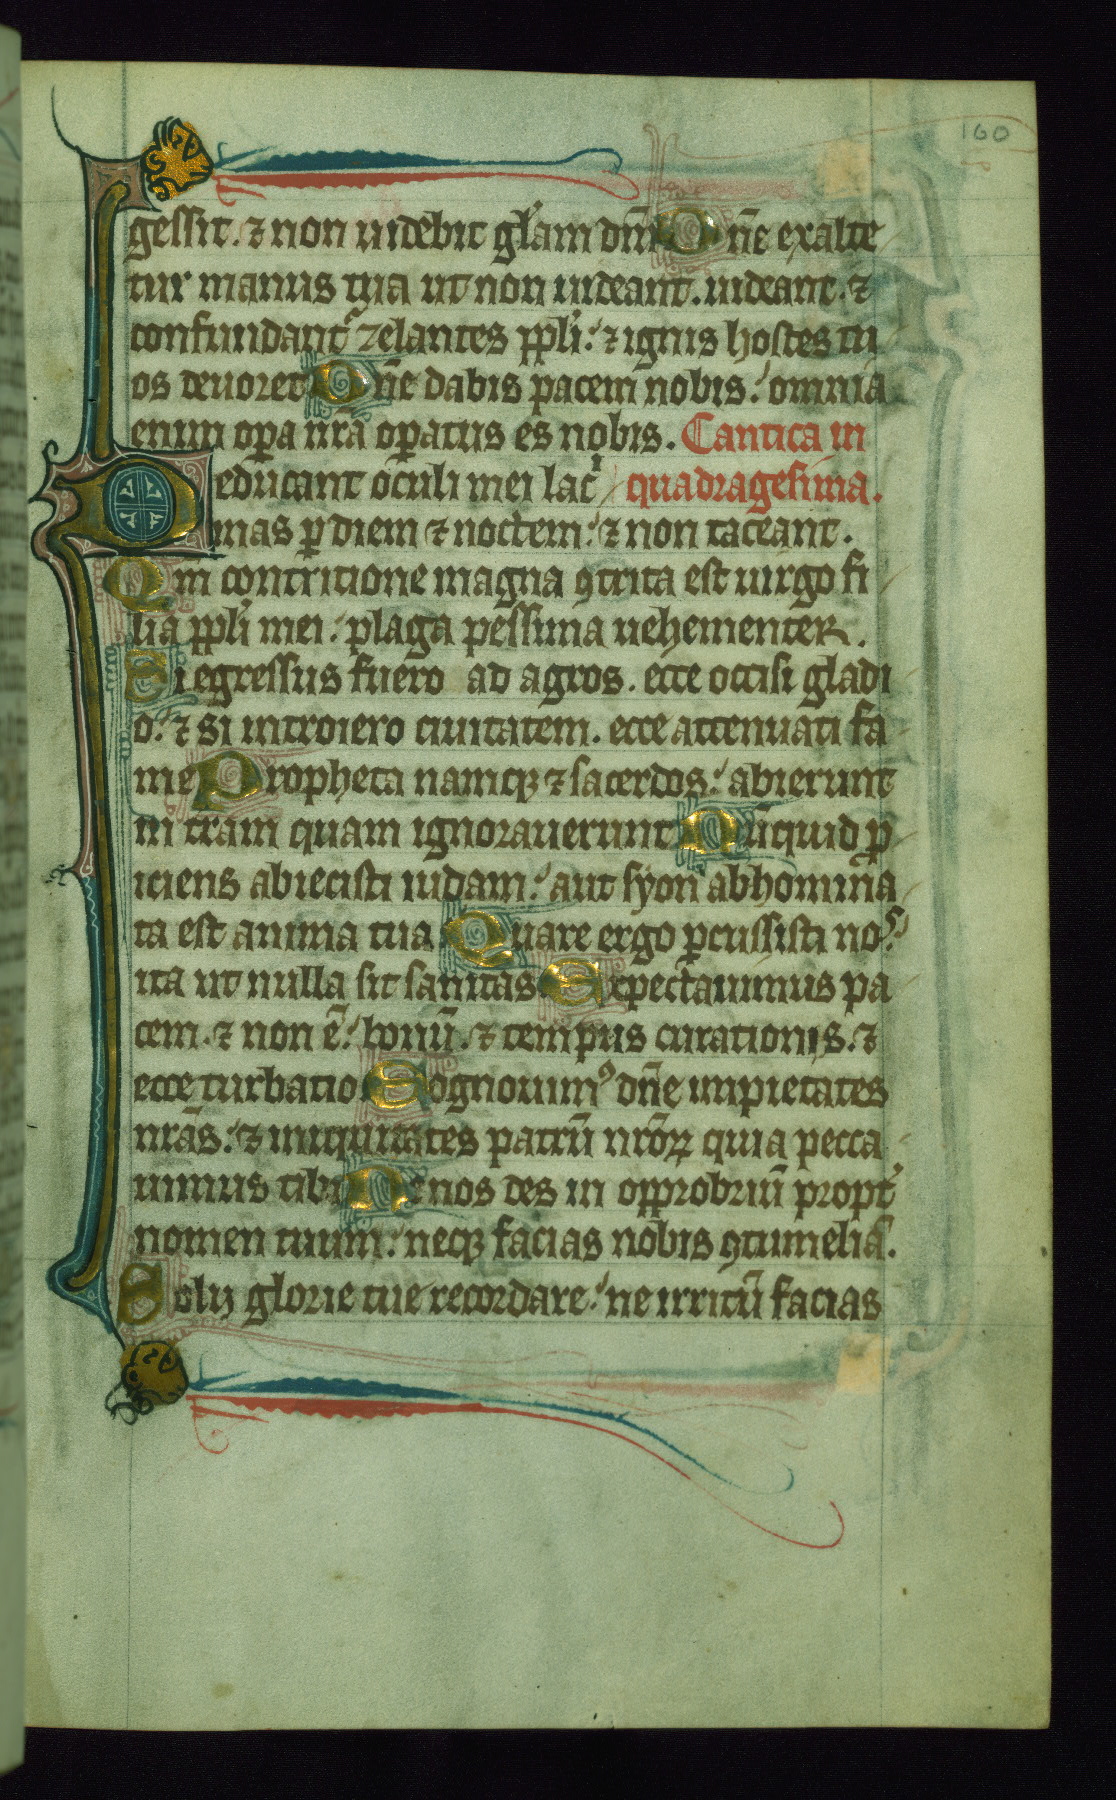 160
gessit. ⁊ non uidebit gl'am dn̄i Dn̄e exalte
tur manus tua ut non uideant. uideant. ⁊
confundant᷑ zelantes ppl'i: ⁊ ignis hostes tu
os deuoret Dn̄e dabis pacem nobis: omnia
enim op̄a nr̄a op̄atus es nobis. Cantica in
Deducant oculi mei lac quadragesima.
mas ꝑ diem ⁊ noctem: ⁊ non taceant.
Qm̄ contritione magna ꝯtrita est uirgo fi
lia ppl'i mei: plaga pessima uehementer.
Si egressus fuero ad agros. ecce occisi gladi
o: ⁊ si introiero ciuitatem. ecce attenuati fa
me Propheta namqꝫ ⁊ sacerdos: abierunt
in t̄ram quam ignorauerunt Nūquid ꝓ
iciens abiecisti iudam: aut syon abhomina
ta est anima tua Quare ergo ꝑcussisti nos:
ita ut nulla sit sanitas Expectauimus pa
cem. ⁊ non ē: bonū. ⁊ tempus curationis. ⁊
ecce turbatio Cognouimꝰ dn̄e impietates
nr̄as: ⁊ iniquitates patrū nr̄oꝝ quia pecca
uimus tibi Ne nos des in opprobriū propt᷑
nomen tuum: neqꝫ facias nobis ꝯtumeliā.
Solij glorie tue recordare: ne irritū facias